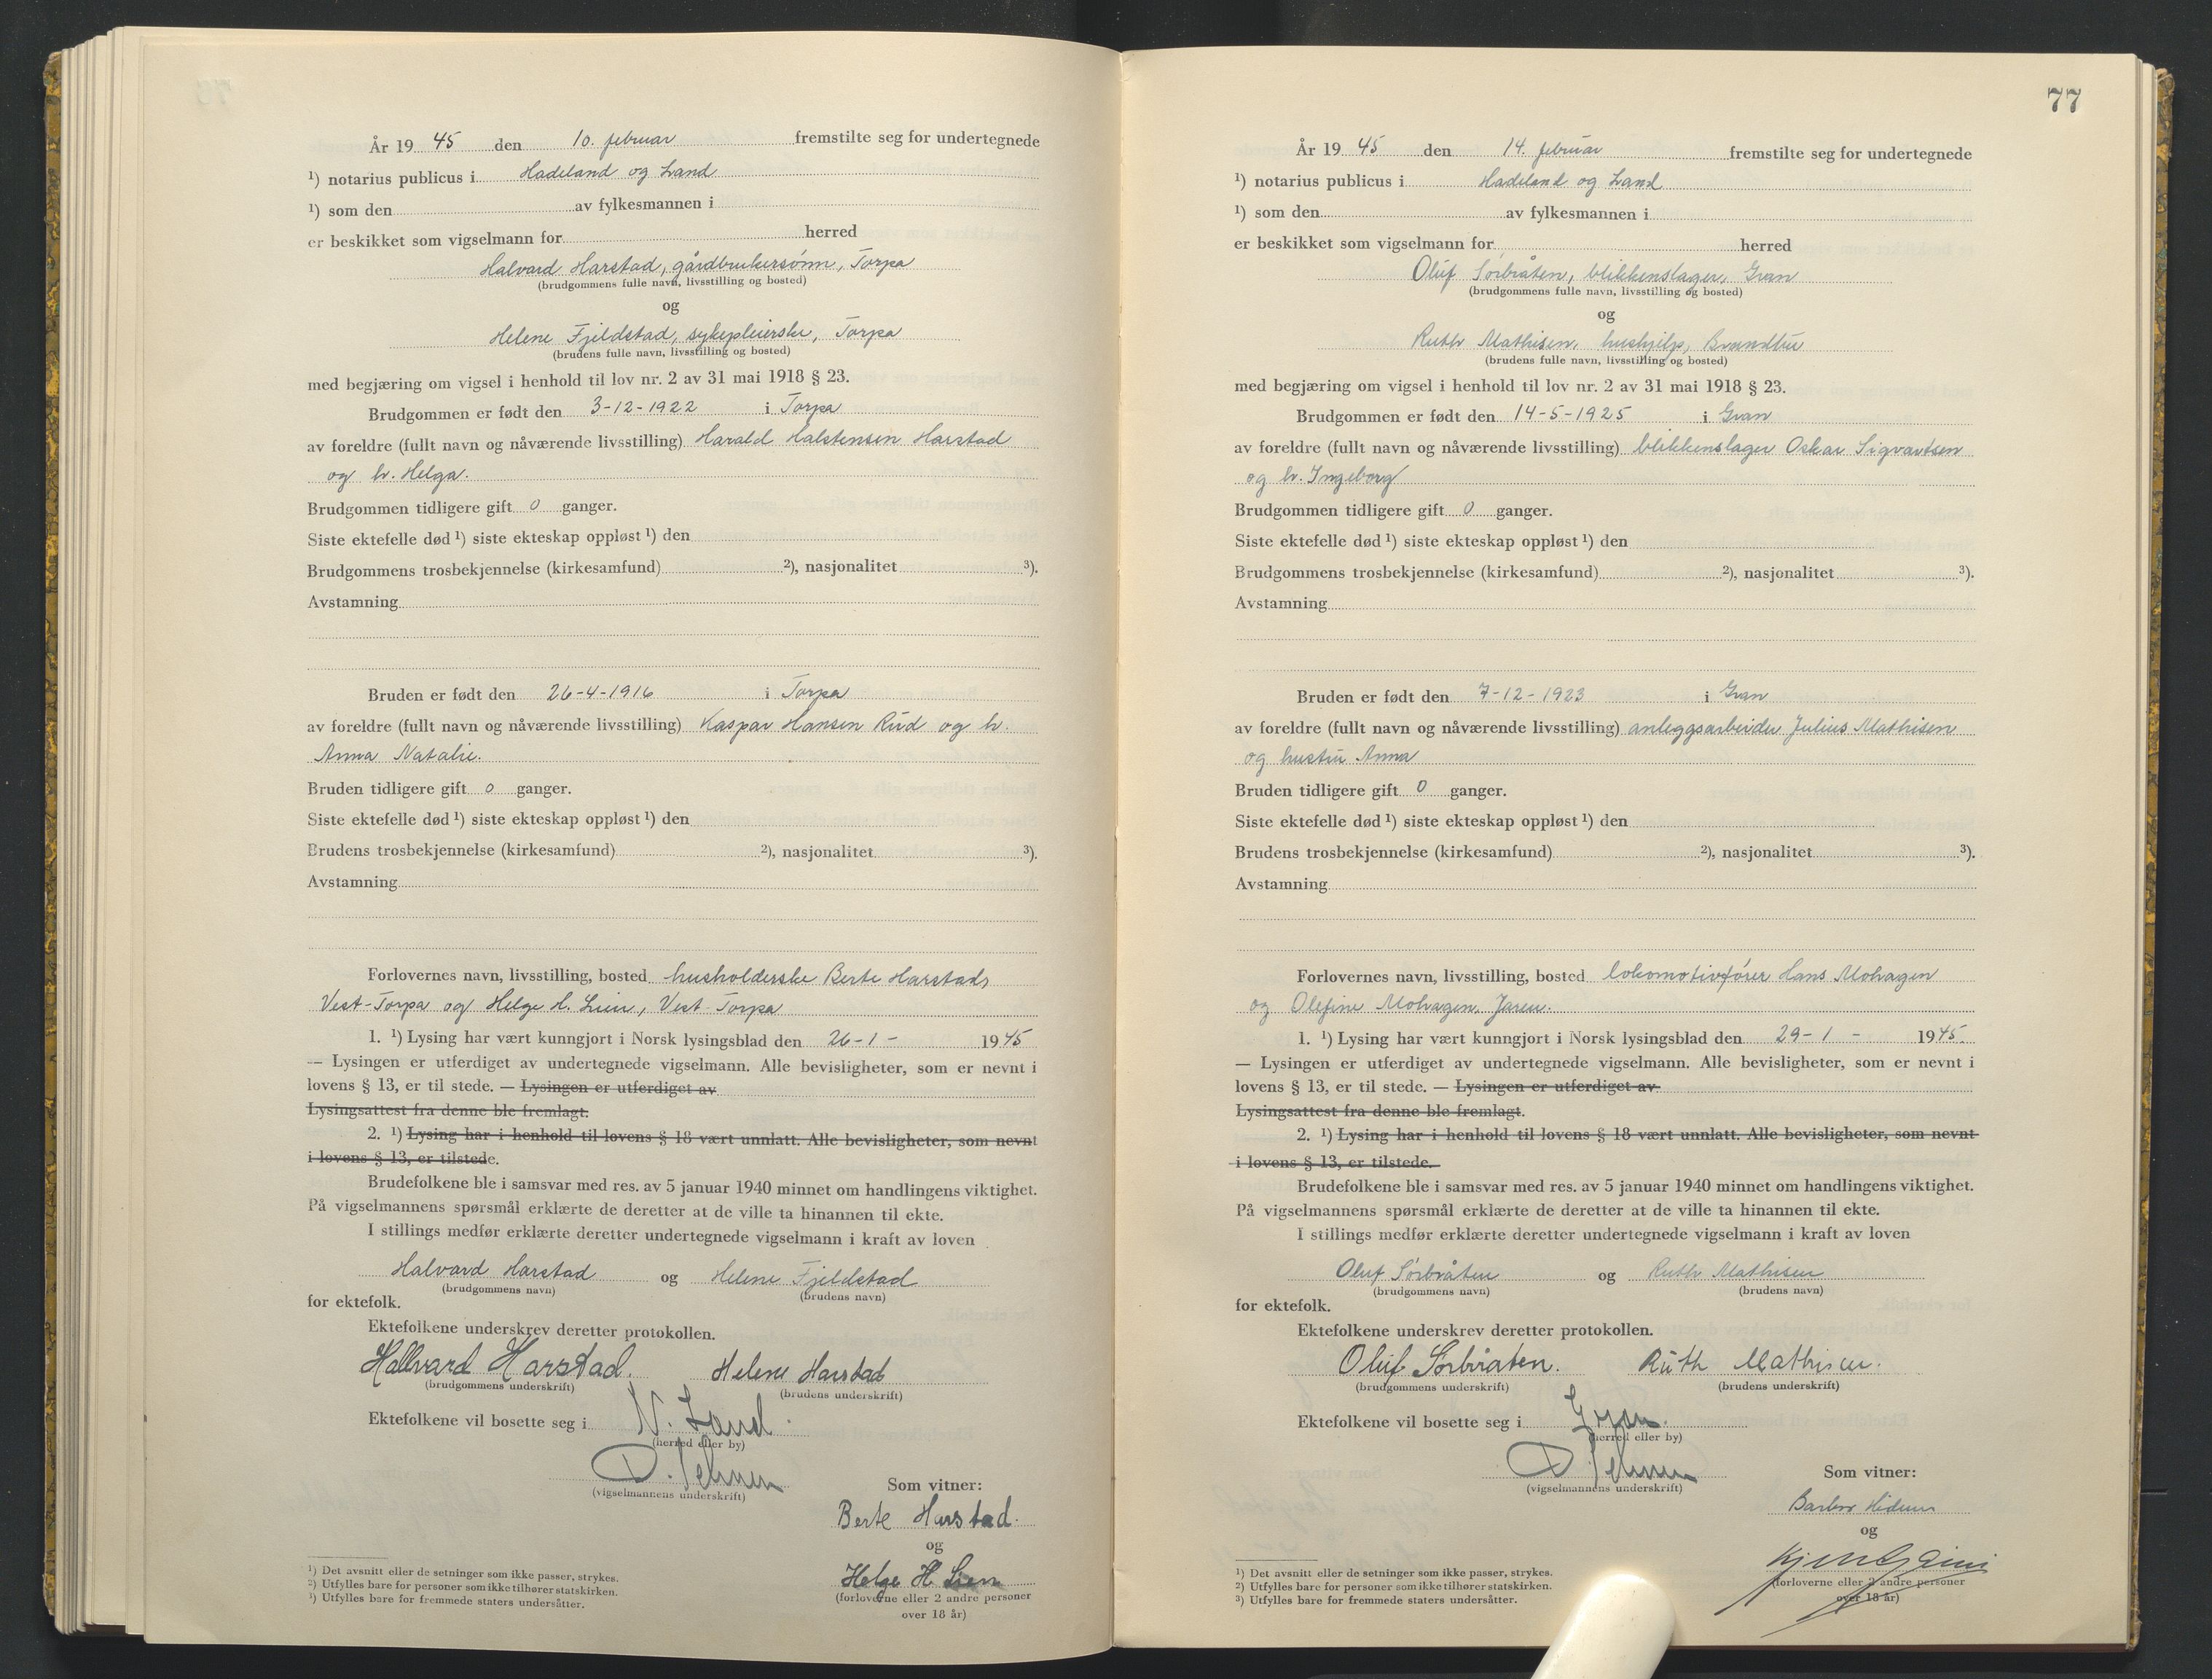 År 19 45 den 10. februar fremstilte seg for undertegnede
¹) notarius publicus i Hadeland og Land
¹) som den av fylkesmannen i
er beskikket som vigselmann for herred
Halvard Harstad, gårdbrukersønn, Torpa
(brudgommens fulle navn, livsstilling og bosted)
og
Helene Fjeldstad, sykepleierske, Torpa
(brudens fulle navn, livsstilling og bosted)
med begjæring om vigsel i henhold til lov nr. 2 av 31 mai 1918 § 23.
Brudgommen er født den 3-12-1922 i Torpa
av foreldre (fullt navn og nåværende livsstilling) Harald Halstensen Harstad
og h. Helga.
Brudgommen tidligere gift 0 ganger.
Siste ektefelle død ¹) siste ekteskap oppløst ¹) den
Brudgommens trosbekjennelse (kirkesamfund) ²), nasjonalitet ³).
Avstamning
Bruden er født den 26-4-1916 i Torpa
av foreldre (fullt navn og nåværende livsstilling) Kaspar Hansen Rud og h.
Anna Natalie.
Bruden tidligere gift 0 ganger.
Siste ektefelle død ¹) siste ekteskap oppløst ¹) den
Brudens trosbekjennelse (kirkesamfund) ²), nasjonalitet ³).
Avstamning
Forlovernes navn, livsstilling, bosted husholderske Berte Harstad,
Vest-Torpa og Helge H. Lien, Vest-Torpa
1. ¹) Lysing har vært kunngjort i Norsk lysingsblad den 26-1- 1945
— Lysingen er utferdiget av undertegnede vigselmann. Alle bevisligheter, som er nevnt i
lovens § 13, er til stede. — Lysingen er utferdiget av
Lysingsattest fra denne ble fremlagt.
2. ¹) Lysing har i henhold til lovens § 18 vært unnlatt. Alle bevisligheter, som nevnt
i lovens § 13, er tilstede.
Brudefolkene ble i samsvar med res. av 5 januar 1940 minnet om handlingens viktighet.
På vigselmannens spørsmål erklærte de deretter at de ville ta hinannen til ekte.
I stillings medfør erklærte deretter undertegnede vigselmann i kraft av loven
Halvard Harstad og Helene Fjeldstad
(brudgommens navn) (brudens navn)
for ektefolk.
Ektefolkene underskrev deretter protokollen.
Hallvard Harstad. Helene Harstad
(brudgommens underskrift) (brudens underskrift)
Ektefolkene vil bosette seg i N. Land.
(herred eller by)
(vigselmannens underskrift)
Som vitner:
Berte Harstad.
og
Helge H Lien
(forloverne eller 2 andre personer
over 18 år)
¹) Det avsnitt eller de setninger som ikke passer, strykes.
²) Utfylles bare for personer som ikke tilhører statskirken.
³) Utfylles bare for fremmede staters undersåtter.
77
År 19 45 den 14. februar fremstilte seg for undertegnede
¹) notarius publicus i Hadeland og Land
¹) som den av fylkesmannen i
er beskikket som vigselmann for herred
Oluf Sørbråten, blikkenslager, Gran
(brudgommens fulle navn, livsstilling og bosted)
og
Ruth Mathisen, hushjelp, Brandbu
(brudens fulle navn, livsstilling og bosted)
med begjæring om vigsel i henhold til lov nr. 2 av 31 mai 1918 § 23.
Brudgommen er født den 14-5-1925 i Gran
av foreldre (fullt navn og nåværende livsstilling) blikkenslager Oskar Sigvartsen
og h. Ingeborg
Brudgommen tidligere gift 0 ganger.
Siste ektefelle død ¹) siste ekteskap oppløst ¹) den
Brudgommens trosbekjennelse (kirkesamfund) ²), nasjonalitet ³).
Avstamning
Bruden er født den 7-12-1923 i Gran
av foreldre (fullt navn og nåværende livsstilling) anleggsarbeider Julius Mathisen
og hustru Anna
Bruden tidligere gift 0 ganger.
Siste ektefelle død ¹) siste ekteskap oppløst ¹) den
Brudens trosbekjennelse (kirkesamfund) ²), nasjonalitet ³).
Avstamning
Forlovernes navn, livsstilling, bosted lokomotivfører Hans Mohagen
og Olefine Mohagen, Jaren.
1. ¹) Lysing har vært kunngjort i Norsk lysingsblad den 29-1- 1945.
— Lysingen er utferdiget av undertegnede vigselmann. Alle bevisligheter, som er nevnt i
lovens § 13, er til stede. — Lysingen er utferdiget av
Lysingsattest fra denne ble fremlagt.
2. ¹) Lysing har i henhold til lovens § 18 vært unnlatt. Alle bevisligheter, som nevnt
i lovens § 13, er tilstede.
Brudefolkene ble i samsvar med res. av 5 januar 1940 minnet om handlingens viktighet.
På vigselmannens spørsmål erklærte de deretter at de ville ta hinannen til ekte.
I stillings medfør erklærte deretter undertegnede vigselmann i kraft av loven
Oluf Sørbråten og Ruth Mathisen
(brudgommens navn) (brudens navn)
for ektefolk.
Ektefolkene underskrev deretter protokollen.
Oluf Sørbråten. Ruth Mathisen.
(brudgommens underskrift) (brudens underskrift)
Ektefolkene vil bosette seg i Gran.
(herred eller by)
(vigselmannens underskrift)
Som vitner:
og
(forloverne eller 2 andre personer
over 18 år)
¹) Det avsnitt eller de setninger som ikke passer, strykes.
²) Utfylles bare for personer som ikke tilhører statskirken.
³) Utfylles bare for fremmede staters undersåtter.